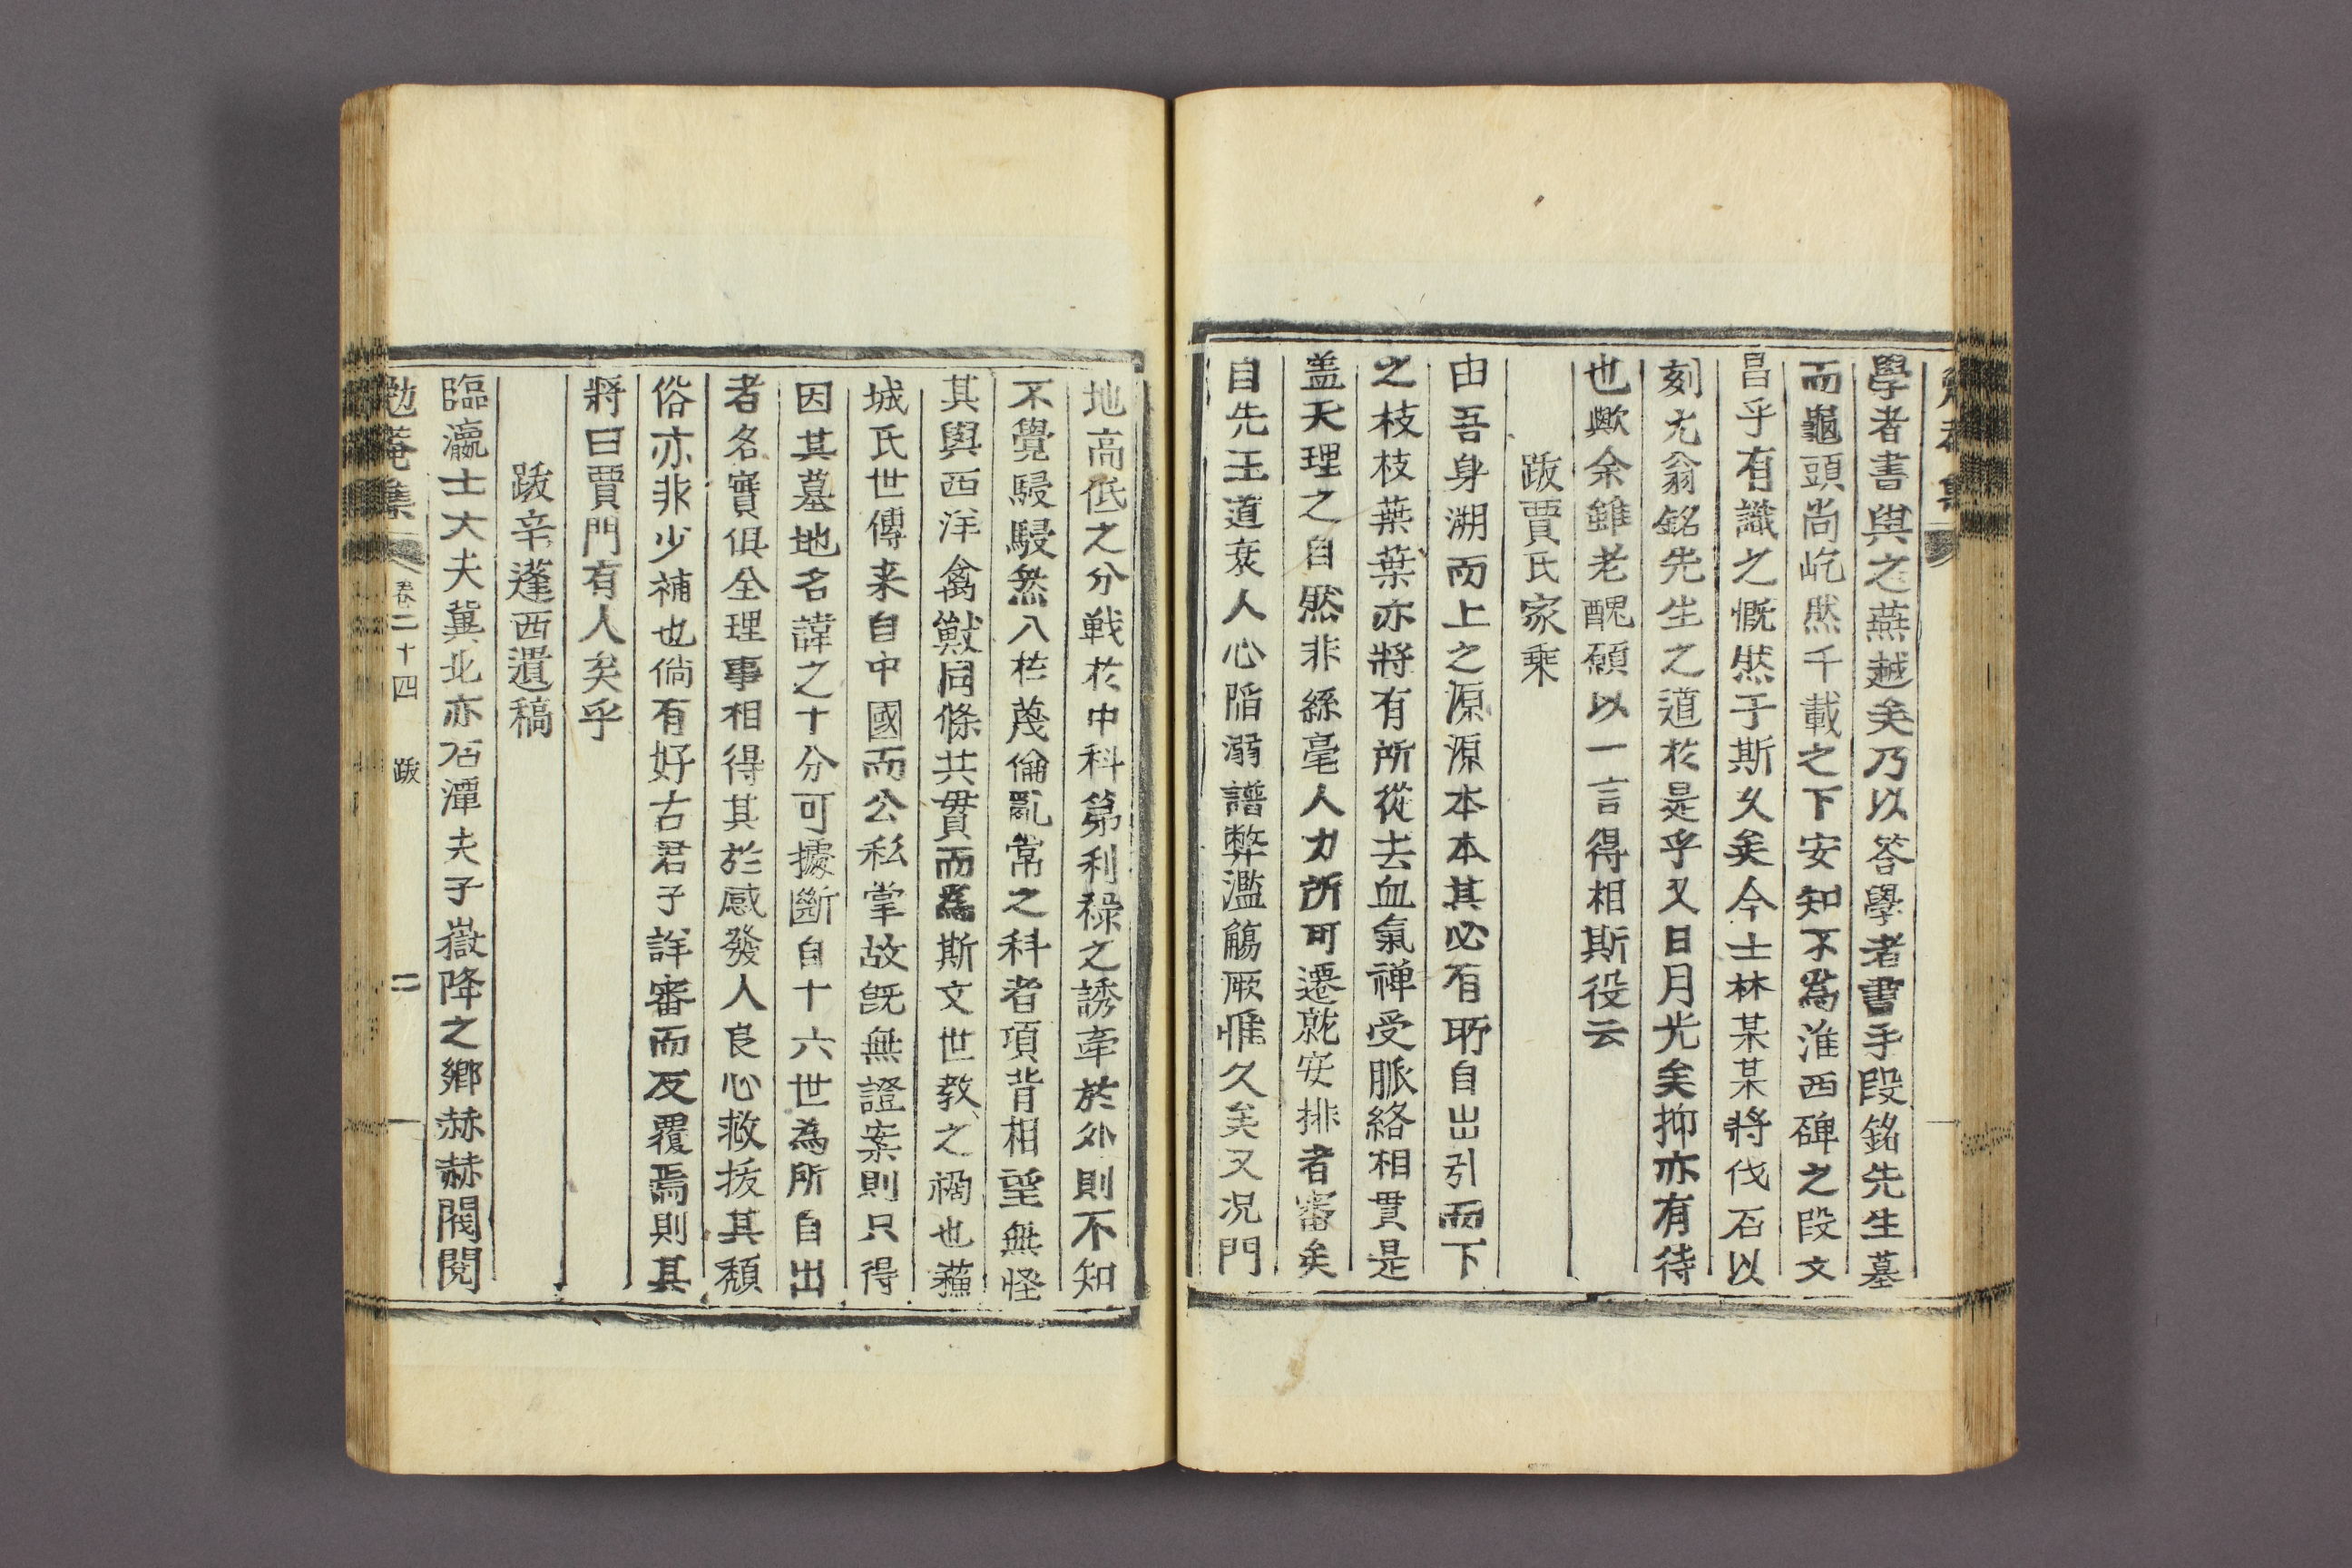 學者書與之燕越矣乃以答學者書手段銘先生墓
而龜頭尚屹然千載之下安知不爲淮西碑之段文
昌乎有識之慨然于斯久矣今士林某某將伐石以
刻尤翁銘先生之道於是乎又日月光矣抑亦有待
也歟余雖老醜願以一言得相斯役云
跋賈氏家乘
由吾身溯而上之源源本本其必有所自出引而下
之枝枝葉葉亦將有所從去血氣禅受脈絡相貫是
盖天理之自然非絲毫人力所可遷就安排者審矣
自先王道衰人心陷溺譜弊濫觴厥惟久矣又況門
地高低之分戦於中科第利祿之誘牽於外則不知
不覺駸駸然入於蔑倫亂常之科者項背相望無怪
其與西洋禽獸同條共貫而爲斯文世教之禍也蘓
城氏世傳来自中國而公私掌故旣無證案則只得
因其墓地名諱之十分可據斷自十六世為所自出
者名實俱全理事相得其於感發人良心救拔其頹
俗亦非少補也倘有好古君子詳審而反覆焉則其
將曰賈門有人矣乎
跋辛蓬西遺稿
臨瀛士大夫冀北亦石潭夫子嶽降之鄉赫赫閥閱
勉菴集 卷二十四 跋 二